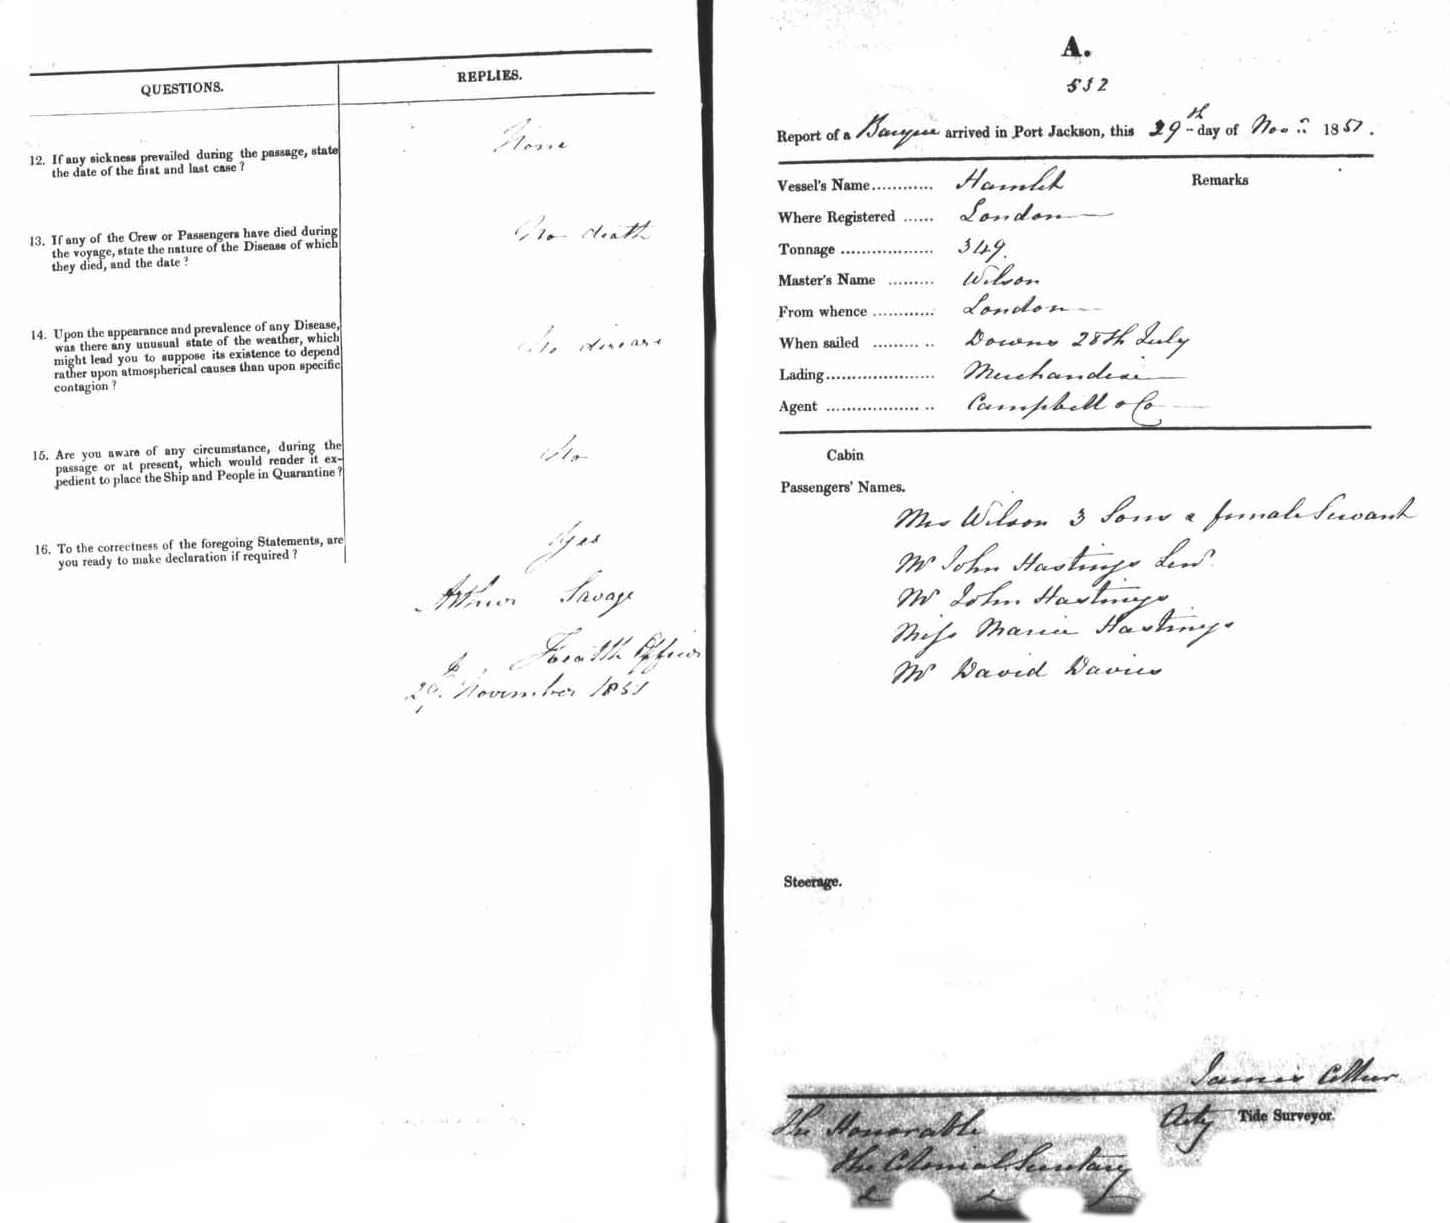 QUESTIONS.
REPLIES.
12. If any sickness prevailed during the passage, state
the date of the first and last case?
None
13. If any of the Crew or Passengers have died during
the voyage, state the nature of the Disease of which
they died, and the date?
No death
14. Upon the appearance and prevalence of any Disease,
was there any unusual state of the weather, which
might lead you to suppose its existence to depend
rather upon atmospherical causes than upon specific
contagion?
No disease
15. Are you aware of any circumstance, during the
passage or at present, which would render it ex-
pedient to place the Ship and People in Quarantine?
No
16. To the correctness of the foregoing Statements, are
you ready to make declaration if required?
Yes
Arthur Savage
Health Officer
29. November 1851
A.
532
Report of a Barque arrived in Port Jackson, this 29th day of Nov.r 1851.
Vessel's Name............ Hamlet
Remarks
Where Registered ...... London
Tonnage .................. 349.
Master's Name ......... Wilson
From whence ............ London
When sailed ......... .. Downs 28th July
Lading..................... Merchandise
Agent .................. .. Campbell & Co
Cabin
Passengers' Names.
Mrs Wilson 3 Sons & female Servant
Mr John Hastings Senr.
Mr John Hastings
Miss Maria Hastings
Mr David Davies
Steerage.
James
Actg Tide Surveyor.
The Honorable
The Colonial Secretary